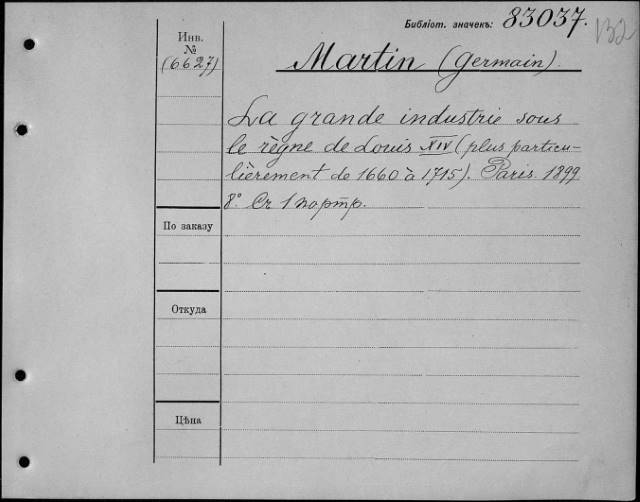 Библіот. значекъ: 83037.
132
Инв.
№
(6627)
Martin (Germain).
La grande industrie sous
le règne de Louis XIV (plus particu-
lièrement de 1660 à 1715). Paris. 1899
8º. Cг 1 портр.
По заказу
Откуда
Цѣна